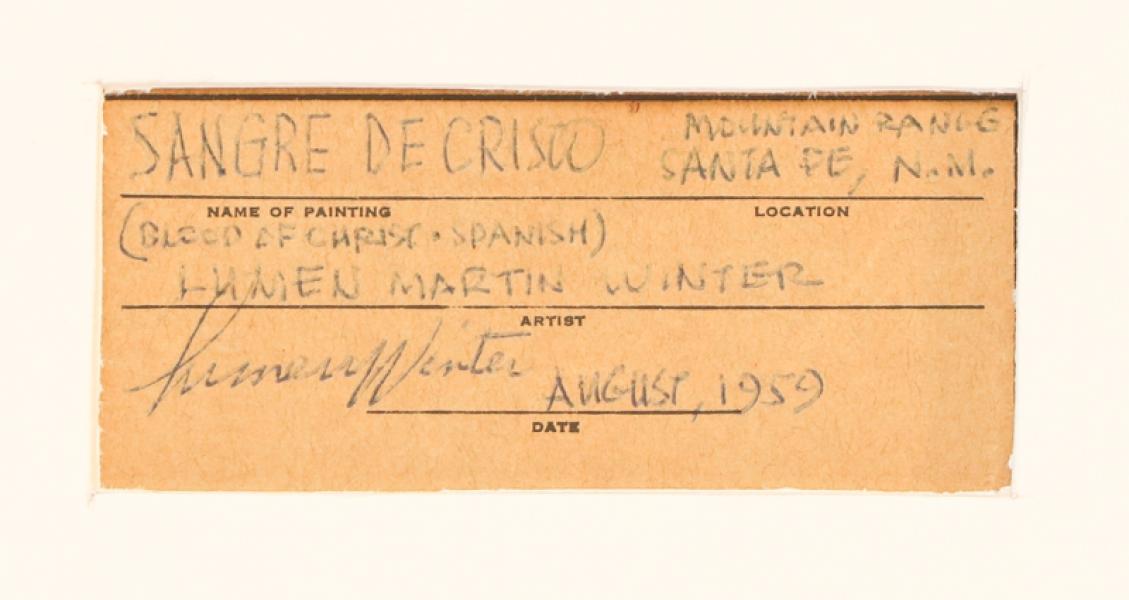 SANGRE DE CRISTO MOUNTAIN RANGE
SANTA FE, N.M.
NAME OF PAINTING LOCATION
(BLOOD OF CHRIST • SPANISH)
LUMEN MARTIN WINTER
ARTIST
Lumen Winter AUGUST, 1959
DATE